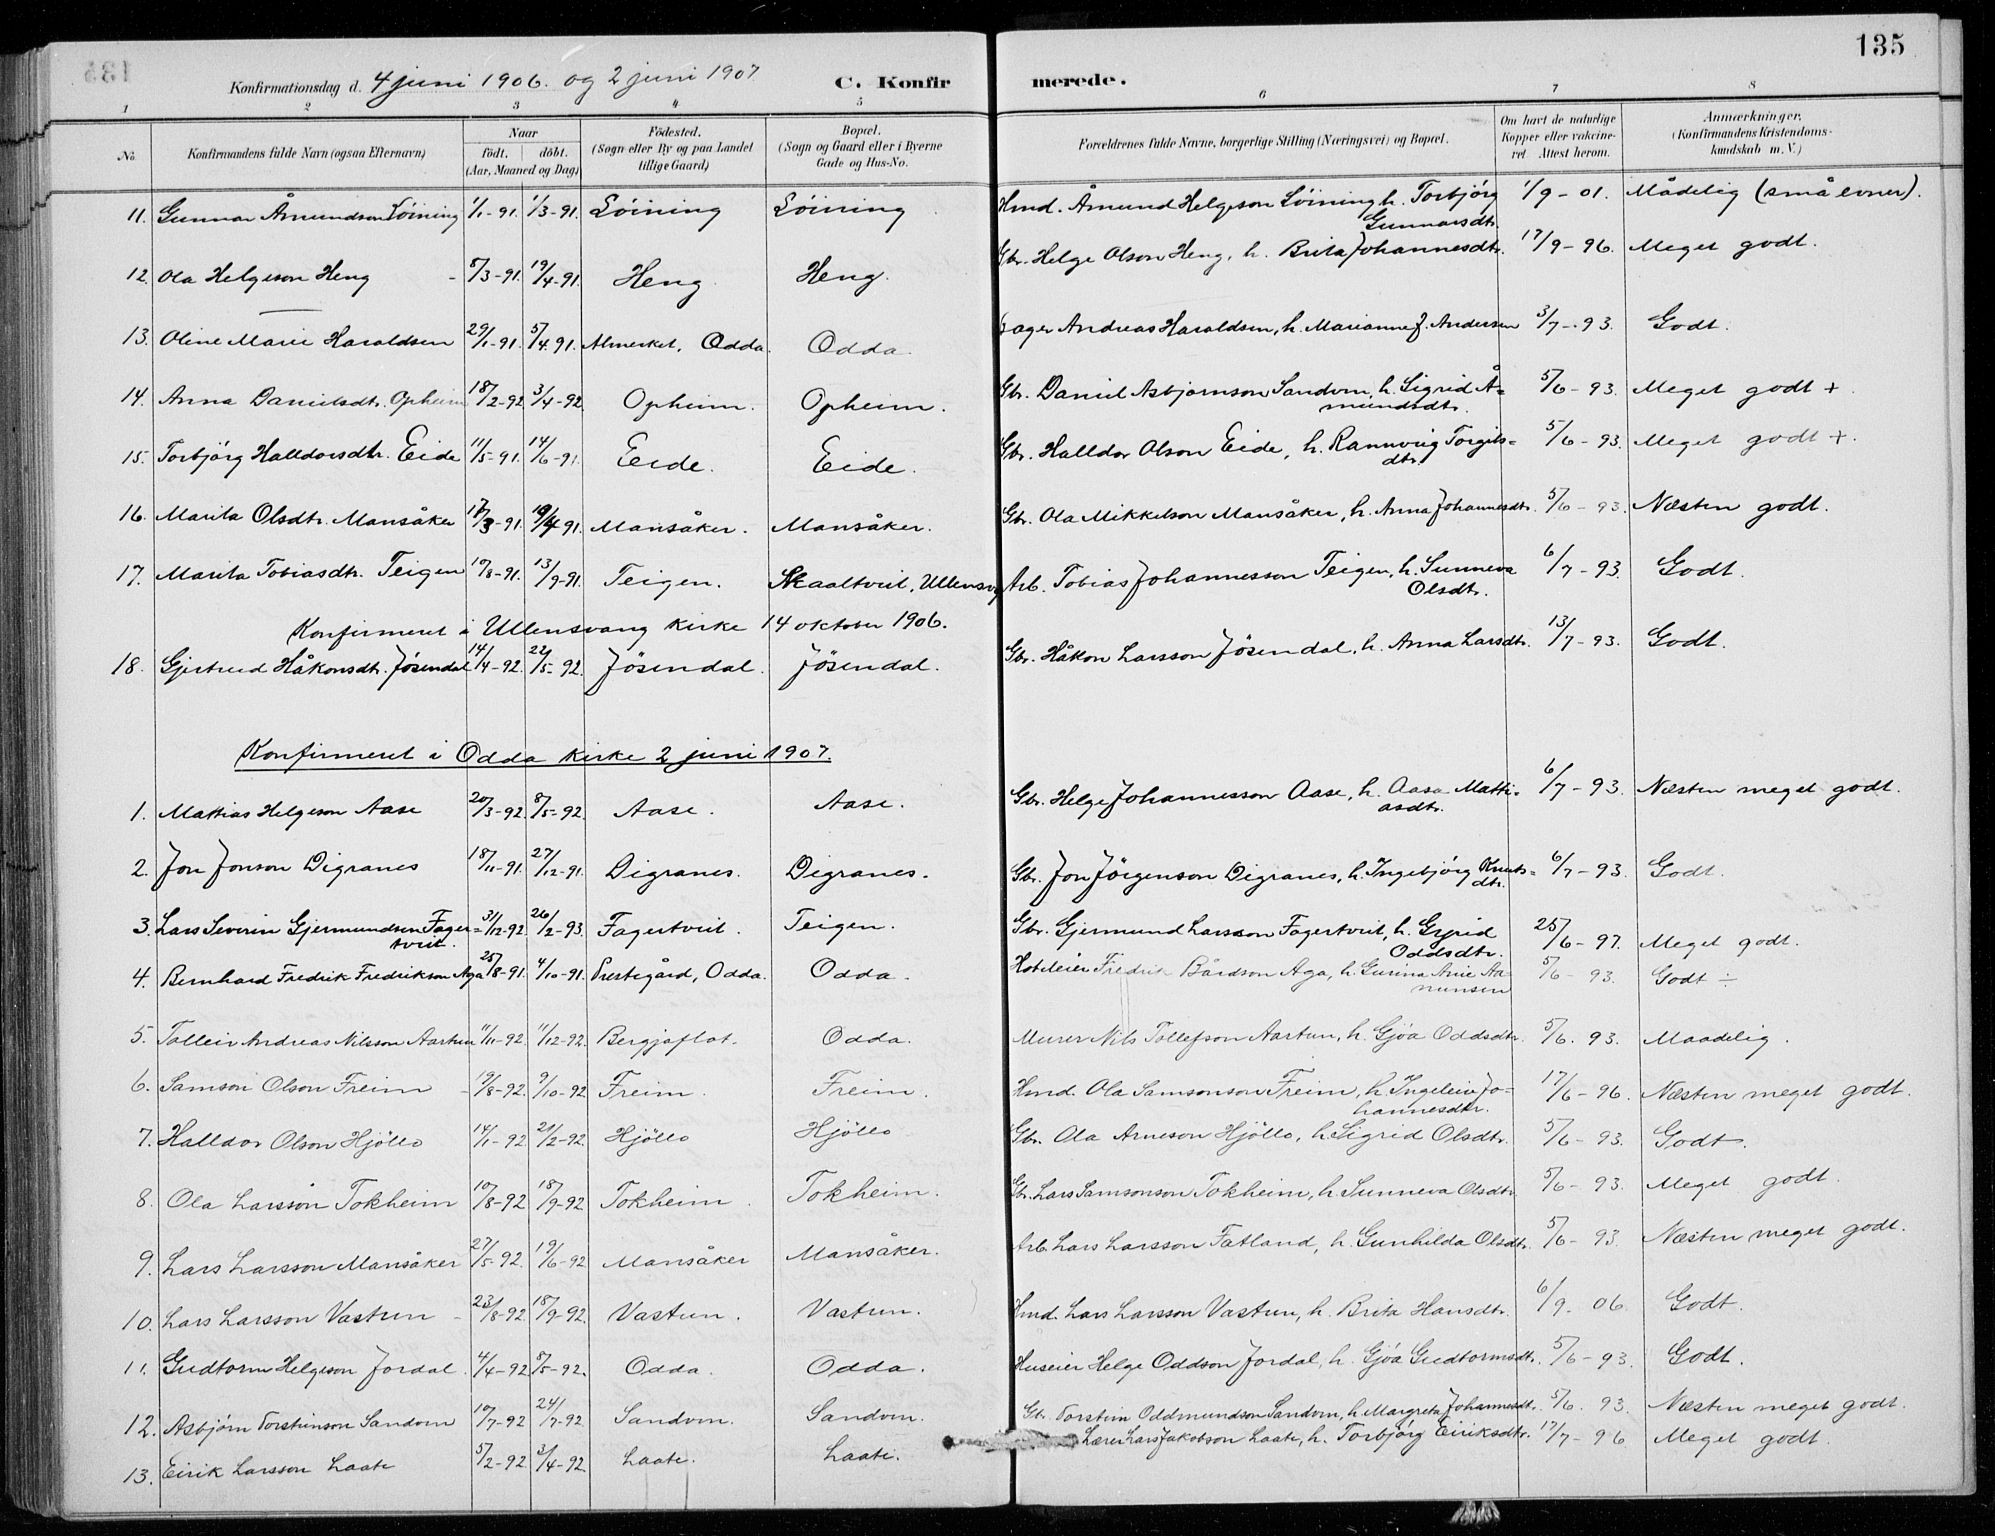 135
Konfirmationsdag d. 4 juni 1906. og 2 juni 1907 C. Konfirmerede.
1 2 3 4 5 6 7 8
No. Konfirmandens fulde Navn (ogsaa Efternavn) Naar født. døbt. (Aar, Maaned og Dag) Fødested. (Sogn eller By og paa Landet tillige Gaard) Bopæl. (Sogn og Gaard eller i Byerne Gade og Hus-No. Forældrenes fulde Navne, borgerlige Stilling (Næringsvei) og Bopæl. Om havt de naturlige Kopper eller vakcineret. Attest herom. Anmærkninger, (Konfirmandens Kristendomskundskab m. V.)
11. Gunnar Åmundson Löining 1/1-91. 1/3-91. Löining Löining Hmd. Åmund Helgeson Löining h. Torbjörg Gunnarsdtr. 1/9-01. Mådelig (små evner).
12. Ola Helgeson Heng - 8/3-91. 19/4-91. Heng Heng. Gbr. Helge Olson Heng, h. Brita Johannesdtr. 17/9-96. Meget godt.
13. Oline Marie Haraldsen 29/1-91. 5/4.91. Almerket, Odda. Odda. Andreas Haraldsen, h. Marianne J. Andersen 3/7-93. Godt.
14. Anna Danielsdtr. Opheim 18/2-92 3/4-92 Opheim. Opheim. Gbr. Daniel Asbjørnson Sandvin, h. Sigrid Åmundsdtr. 5/6-93. Meget godt +.
15. Torbjörg Halldorsdtr. Eide 11/5-91. 14/6-91. Eide. Eide. Gbr. Halldor Olson Eide, h. Rannveig Torgilsdtr. 5/6-93. Meget godt +.
16. Marita Olsdtr. Mansåker 17/3-91. 19/4 91. Mansåker. Mansåker. Gbr. Ola Mikkelson Mansåker, h. Anna Johannesdtr. 5/6-93. Næsten godt.
17. Marita Tobiasdtr. Teigen 17/8-91. 13/9-91. Teigen. Skaaltveit, Ullensvg Arb. Tobias Johannesson Teigen, h. Sunneva Olsdtr. 6/7-93. Godt.
Konfirmeret i Ullensvang kirke 14 oktober 1906.
18. Gjertrud Håkonsdtr. Jösendal 14/4-92. 22/5-92. Jösendal. Jösendal. Gbr. Håkon Larsson Jösendal, h. Anna Larsdtr. 13/7-93. Godt.
Konfirmeret i Odda kirke 2 juni 1907.
1. Mattias Helgeson Aase 20/3-92. 8/5-92. Aase. Aase. Gbr. Helge Johannesson Aase, h. Aasa Mattiasdtr. 6/7-93. Næsten meget godt.
2. Jon Jonson Digranes 18/11-91. 27/12-91. Digranes. Digranes. Gbr. Jon Jörgenson Digranes, h. Ingebjörg Knutsdtr. 6/7-93. Godt.
3. Lars Severin Gjermundsen Fagertveit. 31/12-92. 26/2-93. Fagertveit. Teigen. Gbr. Gjermund Larsson Fagertveit, h. Gyrid Oddsdtr. 25/6-97. Meget godt.
4. Bernhard Fredrik Fredrikson Aga 25/8-91. 4/10-91. Prestegård, Odda. Odda. Hoteleier Fredrik Bårdson Aga, h. Gurina Anie Aamunsen 5/6-93. Godt ÷
5. Tolleiv Andreas Nilsson Aartun 11/11-92. 11/12-92. Bergjaflot. Odda. Murer Nils Tollefson Aartun, h. Gjöa Oddsdtr. 5/6.93. Maadelig.
6. Samson Olson Freim - 19/8-92. 9/10-92. Freim. Freim. Hmd. Ola Samsonson Freim, h. Ingeleiv Johannesdtr. 17/6-96. Næsten meget godt.
7. Halldor Olson Hjöllo 14/1-92 21/2-92. Hjöllo Hjöllo Gbr. Ola Arneson Hjöllo, h. Sigrid Olsdtr. 5/6-93. Godt.
8. Ola Larsson Tokheim 10/8-92 18/9-92 Tokheim. Tokheim. Gbr. Lars Samsonson Tokheim, h. Sunneva Olsdtr. 5/6-93. Meget godt.
9. Lars Larsson Mansåker 27/5-92. 19/6-92 Mansåker Mansåker. Arb. Lars Larsson Fatland, h. Gunhilda Olsdtr. 5/6-93. Næsten meget godt.
10. Lars Larsson Vastun - 23/8-92 18/9-92. Vastun. Vastun. Hmd. Lars Larsson Vastun, h. Brita Hansdtr. 6/9-06. Godt.
11. Gudtorm Helgeson Jordal. 4/4-92 8/5-92. Odda. Odda. Huseier Helge Oddson Jordal, h. Gjöa Gudtormsdtr. 5/6-93. Godt.
12. Asbjörn Torsteinson Sandven 10/7-92 24/7-92. Sandven. Sandven. Gbr. Torstein Oddmundson Sandven, h. Margreta Johannesdtr. 5/6.93. Næsten meget godt.
13. Eirik Larsson Laate 5/2-92 3/4-92 Laate. Laate. Lærer Lars Jakobson Laate, h. Torbjörg Eiriksdtr. 17/7-96 Meget godt.